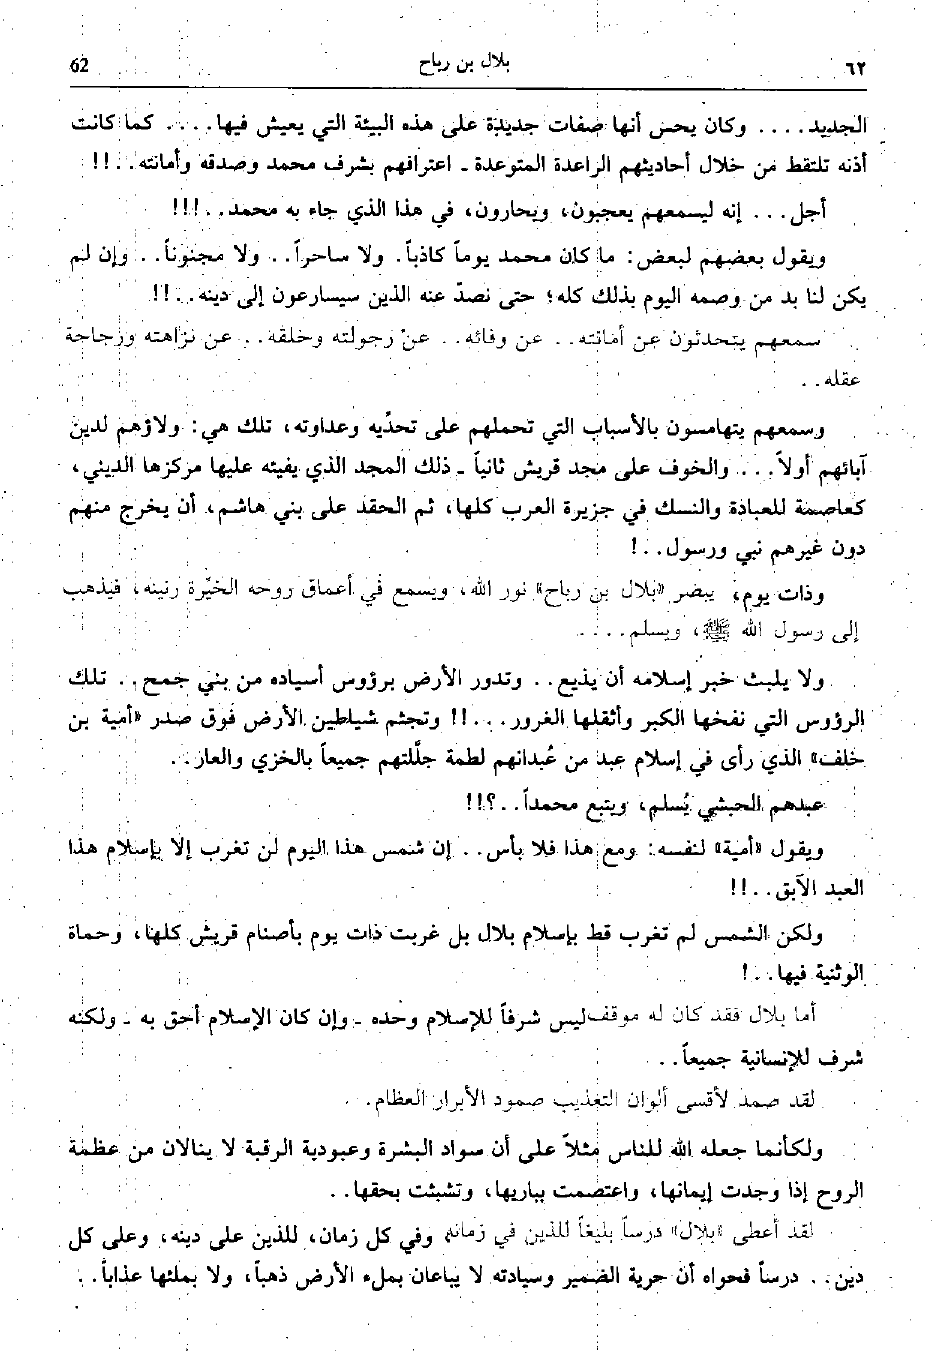 ٦٢ بلال بن رباح 62
الجديد.... وكان يحس أنها صفات جديدة على هذه البيئة التي يعيش فيها.... كما كانت
أذنه تلتقط من خلال أحاديثهم الراعدة المتوعدة ـ اعترافهم بشرف محمد وصدقه وأمانته..!!
أجل... إنه ليسمعهم يعجبون، ويحارون، في هذا الذي جاء به محمد..!!!
ويقول بعضهم لبعض: ما كان محمد يوماً كاذباً. ولا ساحراً.. ولا مجنوناً.. وإن لم
يكن لنا بد من وصمه اليوم بذلك كله؛ حتى نصدّ عنه الذين سيسارعون إلى دينه..!!
سمعهم يتحدثون عن أمانته.. عن وفائه.. عن رجولته وخلقه.. عن نزاهته ورجاجة
عقله..
وسمعهم يتهامسون بالأسباب التي تحملهم على تحدّيه وعداوته، تلك هي: ولاؤهم لدين
آبائهم أولاً... والخوف على مجد قريش ثانياً ـ ذلك المجد الذي يفيئه عليها مركزها الديني،
كعاصمة للعبادة والنسك في جزيرة العرب كلها، ثم الحقد على بني هاشم، أن يخرج منهم
دون غيرهم نبي ورسول..!
وذات يوم، يبصر «بلال بن رباح» نور الله، ويسمع في أعماق روحه الخيّرة رنينه، فيذهب
إلى رسول الله ﷺ، ويسلم....
ولا يلبث خبر إسلامه أن يذيع.. وتدور الأرض برؤوس أسياده من بني جمح.. تلك
الرؤوس التي نفخها الكبر وأثقلها الغرور..!! وتجثم شياطين الأرض فوق صدر «أمية بن
خلف» الذي رأى في إسلام عبد من عُبدانهم لطمة جلّلتهم جميعاً بالخزي والعار..
عبدهم الحبشي يُسلم، ويتبع محمداً..؟!!
ويقول «أمية» لنفسه: ومع هذا فلا بأس.. إن شمس هذا اليوم لن تغرب إلا بإسلام هذا
العبد الآبق..!!
ولكن الشمس لم تغرب قط بإسلام بلال بل غربت ذات يوم بأصنام قريش كلها، وحماة
الوثنية فيها..!
أما بلال فقد كان له موقف ليس شرفاً للإسلام وحده ـ وإن كان الإسلام أحق به ـ ولكنه
شرف للإنسانية جميعاً..
لقد صمد لأقسى ألوان التعذيب صمود الأبرار العظام.
ولكأنما جعله الله للناس مثلاً على أن سواد البشرة وعبودية الرقبة لا ينالان من عظمة
الروح إذا وجدت إيمانها، واعتصمت بباريها، وتشبثت بحقها..
لقد أعطى «بلال» درساً بليغاً للذين في زمانه وفي كل زمان، للذين على دينه، وعلى كل
دين.. درساً فحواه أن حرية الضمير وسيادته لا يباعان بملء الأرض ذهباً، ولا بملئها عذاباً..